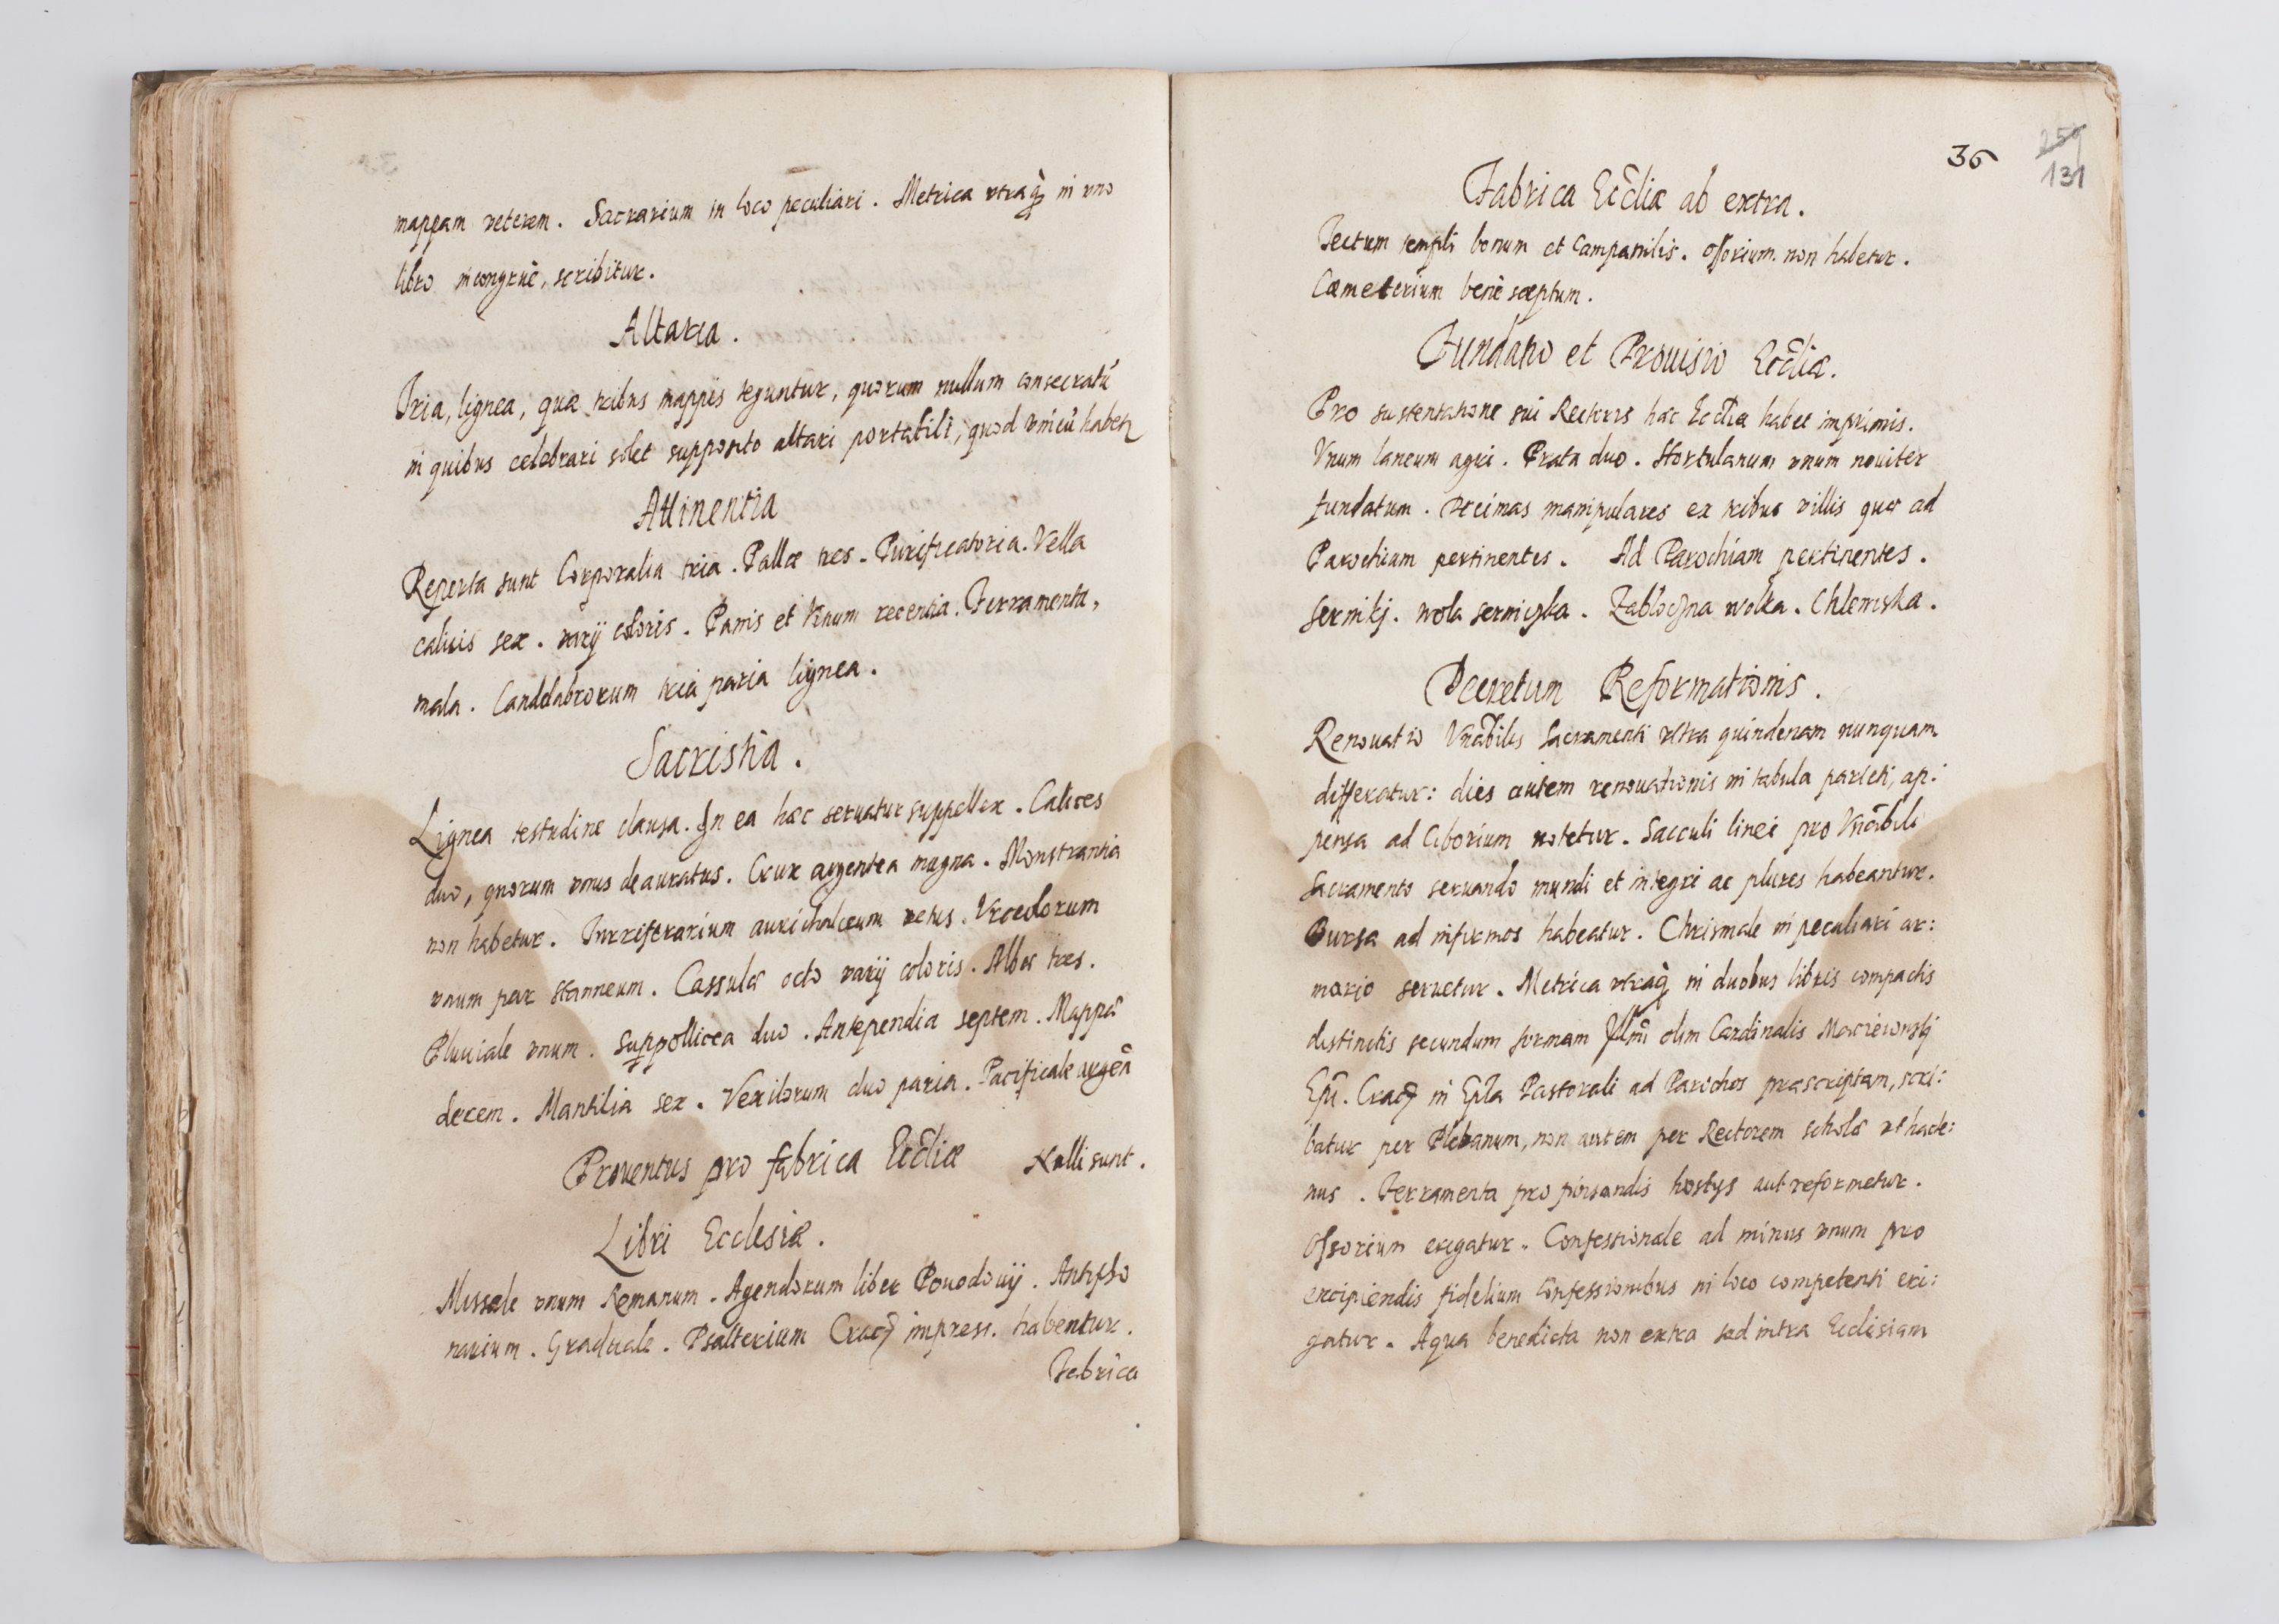 mappam veterem. Sacrarium in loco peculiari. Metrica vtraq; in vno
libro incongruè, scribitur.
Altaria.
Tria, lignea, quæ tribus mappis teguntur, quorum nullum consecratū
in quibus celebrari solet supposito altari portatili, quod vnicū habet
Attinentia
Reperta sunt Corporalia tria. Pallæ tres. Purificatoria. Vella
calicis sex. varij coloris. Panis et Vinum recentia. Ferramenta,
mala. Candelabrorum tria paria lignea.
Sacristia.
Lignea testudine clausa. In ea hæc seruatur suppellex. Calices
duo, quorum vnus deauratus. Crux argentea magna. Monstrantia
non habetur. Turriferarium aurichalceum vetus. Vrceolorum
vnum par stanneum. Cassulæ octo varij coloris. Albæ tres.
Pluuiale vnum. Suppellicea duo. Antependia septem. Mappæ
decem. Mantilia sex. Vexilorum duo paria. Pacificale argeā
Prouentus pro fabrica Ecc̄liæ Nulli sunt.
Libri Ecclesiæ.
Missale vnum Romanum. Agendorum liber Pouodouij. Antipho
narium. Graduale. Psalterium Crac; impress. habentur.
Fabrica
36
259
131
Fabrica Ecc̄liæ ab extra.
Tectum templi bonum et Campanilis. Ossorium non habetur.
Cæmeterium benè sæptum.
Fundatio et Prouisio Ecc̄liæ.
Pro sustentatione sui Rectoris hæc Ecc̄lia habet imprimis.
Vnum laneum agri. Prata duo. Hortulanum vnum nouiter
fundatum. Decimas manipulares ex tribus villis quæ ad
Parochiam pertinentes. Ad Parochiam pertinentes.
Serniki. wola serniczka. Zabłoczna wolka. Chlewiska.
Decretum Reformationis.
Renouatio Vnābilis Sacramenti vltra quindenam nunquam
differatur: dies autem renouationis in tabula parieti, ap:
pensa ad Ciborium notetur. Sacculi linei pro Vnābili
Sacramento seruando mundi et integri ac plures habeantur.
Bursa ad infirmos habeatur. Chrismale in peculiari ar:
mario seruetur. Metrica vtraq; in duobus libris compactis
distinctis secundum formam Illm̄i olim Cardinalis Macieiowskj
Ep̄i. Crac; in Ep̄la Pastorali ad Parochos præscriptam, scri:
batur per Plebanum, non autem per Rectorem scholæ vt hacte:
nus. Ferramenta pro pinsandis hostijs aut reformetur.
Ossorium erigatur. Confessionale ad minus vnum pro
excipiendis fidelium Confessionibus in loco competenti eri:
gatur. Aqua benedicta non extra sed intra Ecclesiam